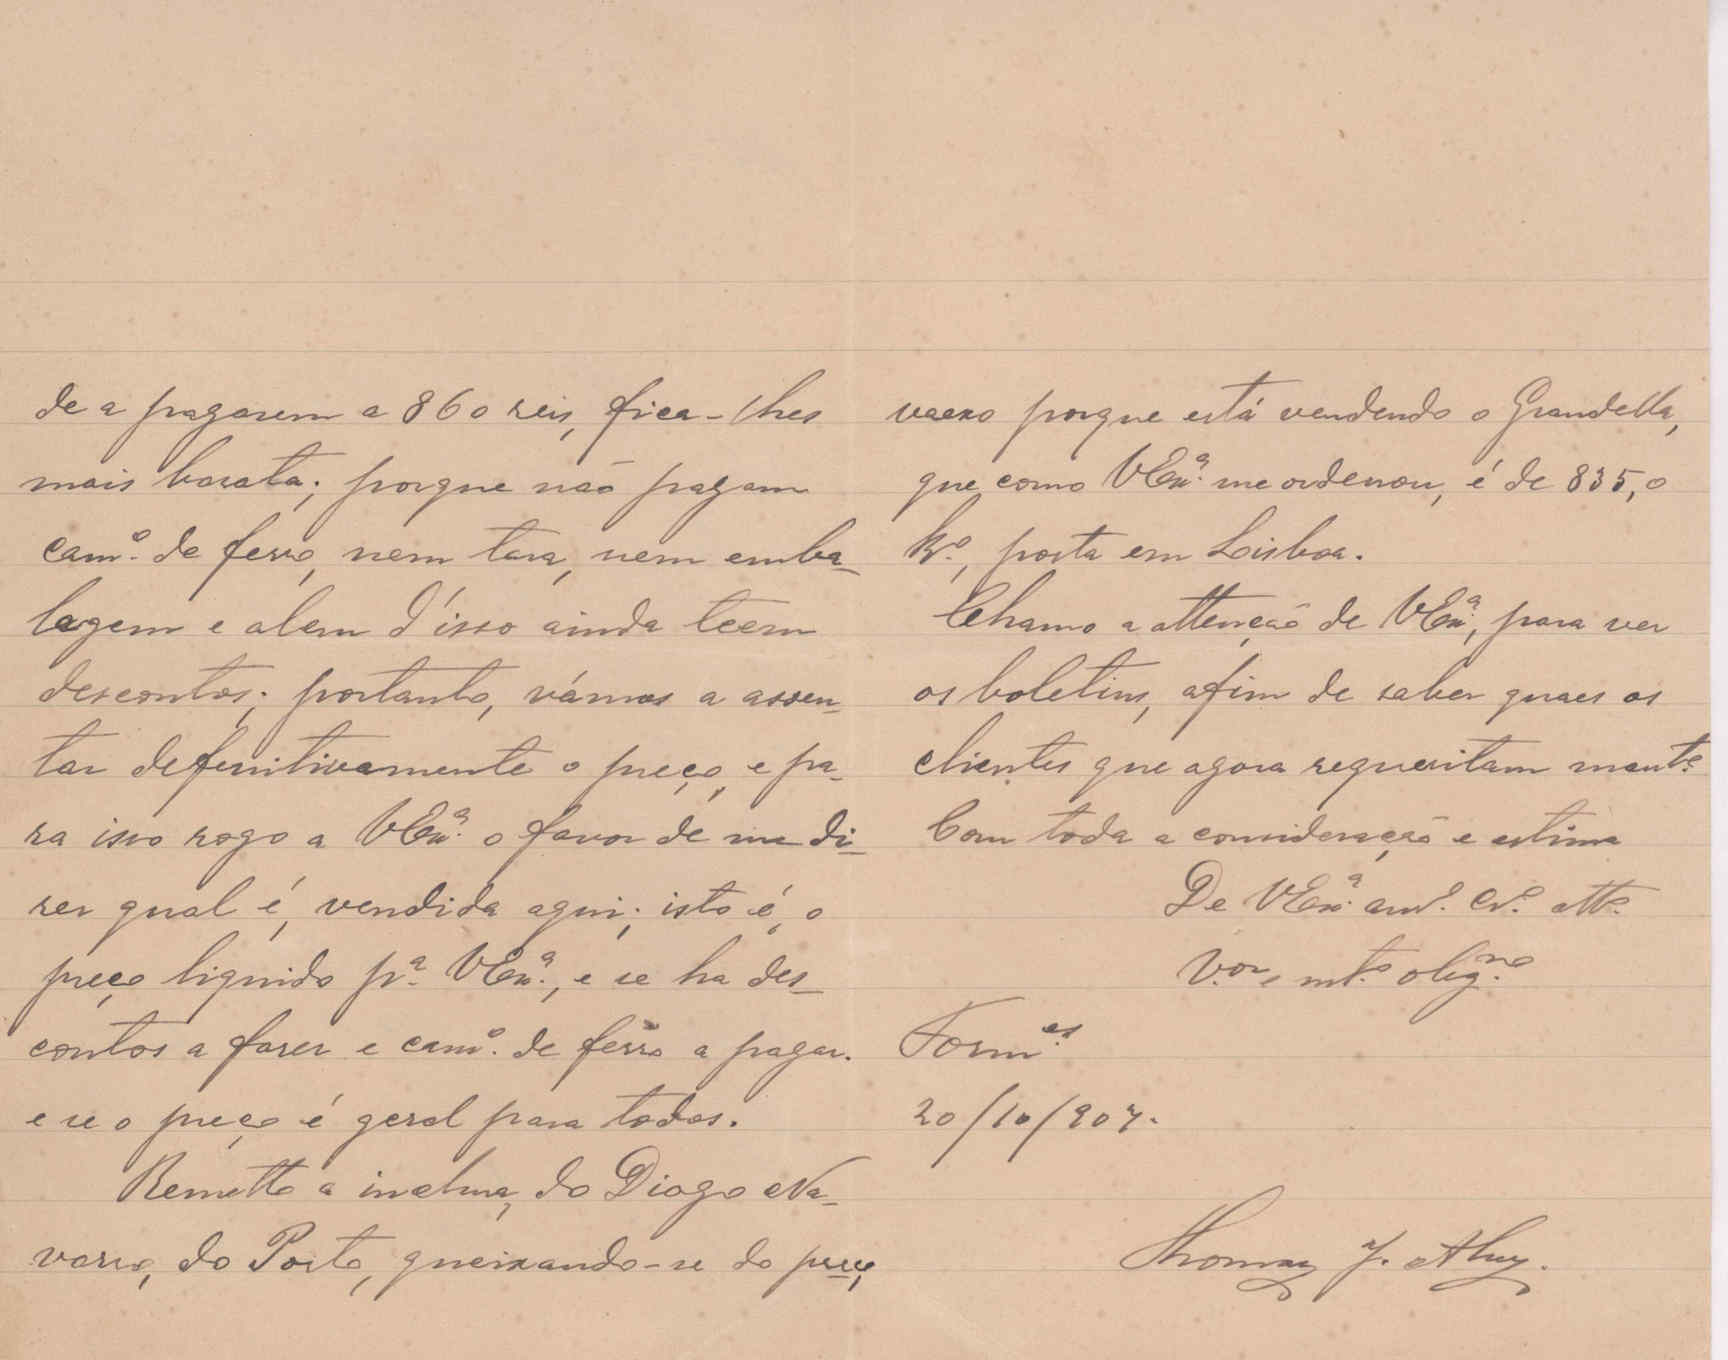 de a pagarem a 860 reis, fica-lhes
mais barata; porque não pagam
cam.º de ferro, nem tara, nem emba-
lagem e alem d'isso ainda teem
descontos; portanto, vámos a assen-
tar defenitivamente o preço, e pa-
ra isso rogo a VExª. o favor de me di-
zer qual é, vendida aqui; isto é, o
preço liquido pª. VExª., e se ha des-
contos a fazer e cam.º de ferro a pagar.
e se o preço é geral para todos.
Remetto a inclusa, do Diogo Na-
varro, do Porto, queixando-se do preço,
porque está vendendo o Grandella,
que como VExª. me ordenou, é de 835, o
k.º, posta em Lisboa.
Chamo a attenção de VExª., para ver
os boletins, afim de saber quaes os
clientes que agora requesitam mant.ª
Com toda a consideração e estima
De VExª. am.º cr.º att.º
V.or e mt.º obrig.mo
Torm.es
20/10/907.
Thomaz J.